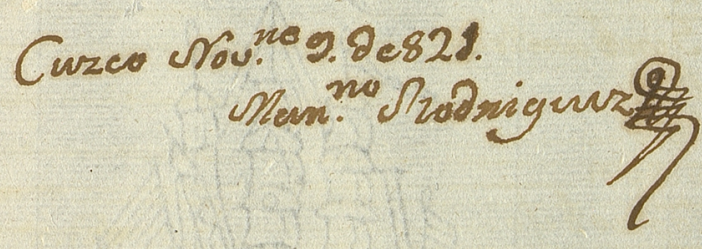 Cuzco Nov.ᵉ 9. de 821.
Man.ⁿᵒ Rodriguez